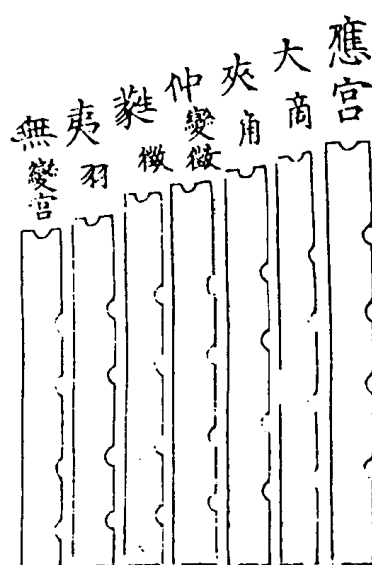 應宮
大商
夾角
仲變徵
蕤徵
夷羽
無變宮